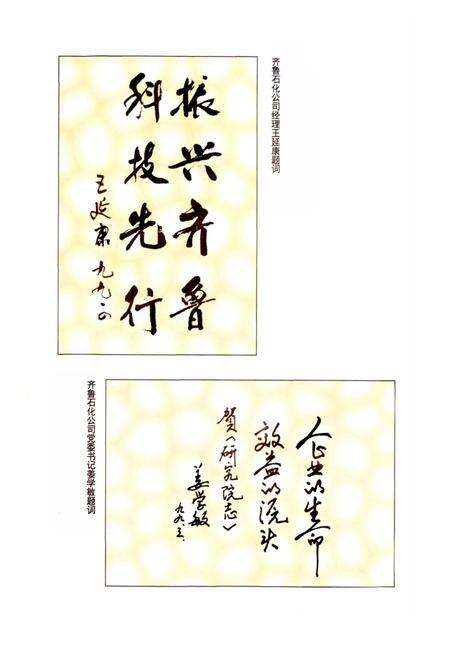 齐鲁石化公司经理王延康题词
振兴齐鲁
科技先行
王延康 九九·四
齐鲁石化公司党委书记姜学敏题词
企业的生命
效益的源头
贺《研究院志》
姜学敏
九九.三.